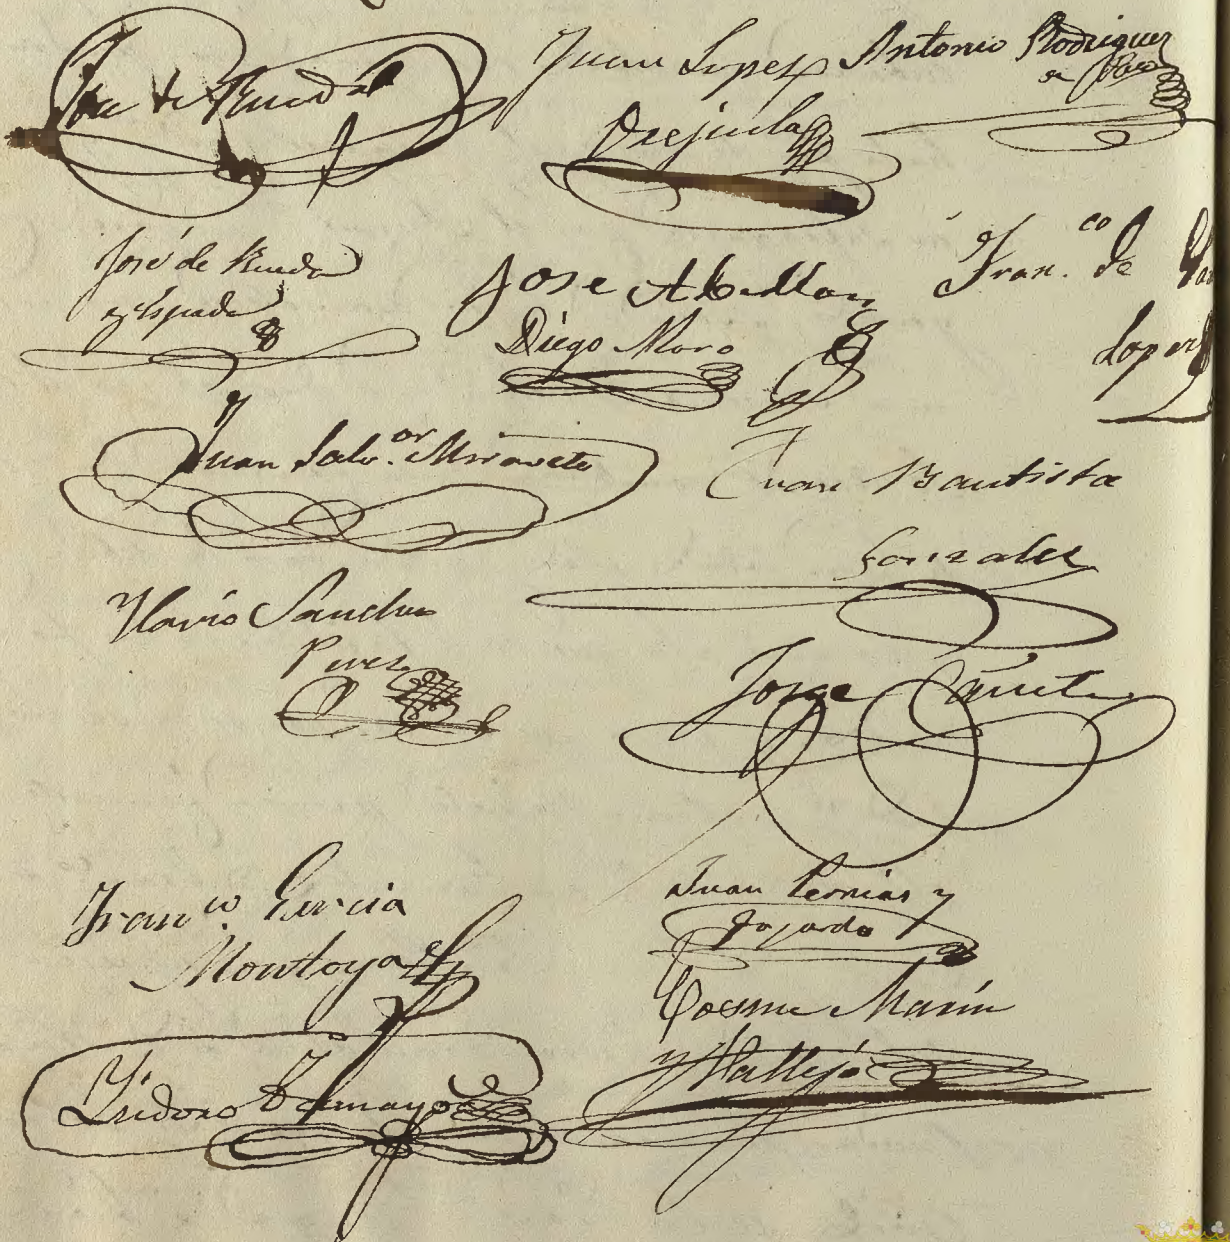 Jose de Rueda
Juan Lopez
Orejuela
Antonio Rodriguez
de
José de Rueda
y Espada
Jose Abellan
Diego Moro
Fran.co de
Lopez
Juan Salv.or Miravete
Juan Bautista
Gonzalez
Ylario Sanchez
Perez
Jorge Cañete
Fran.co Garcia
Montoya
Juan Pernias y
Fajardo
Cosme Marín
y Vallejo
Ysidoro Tamayo